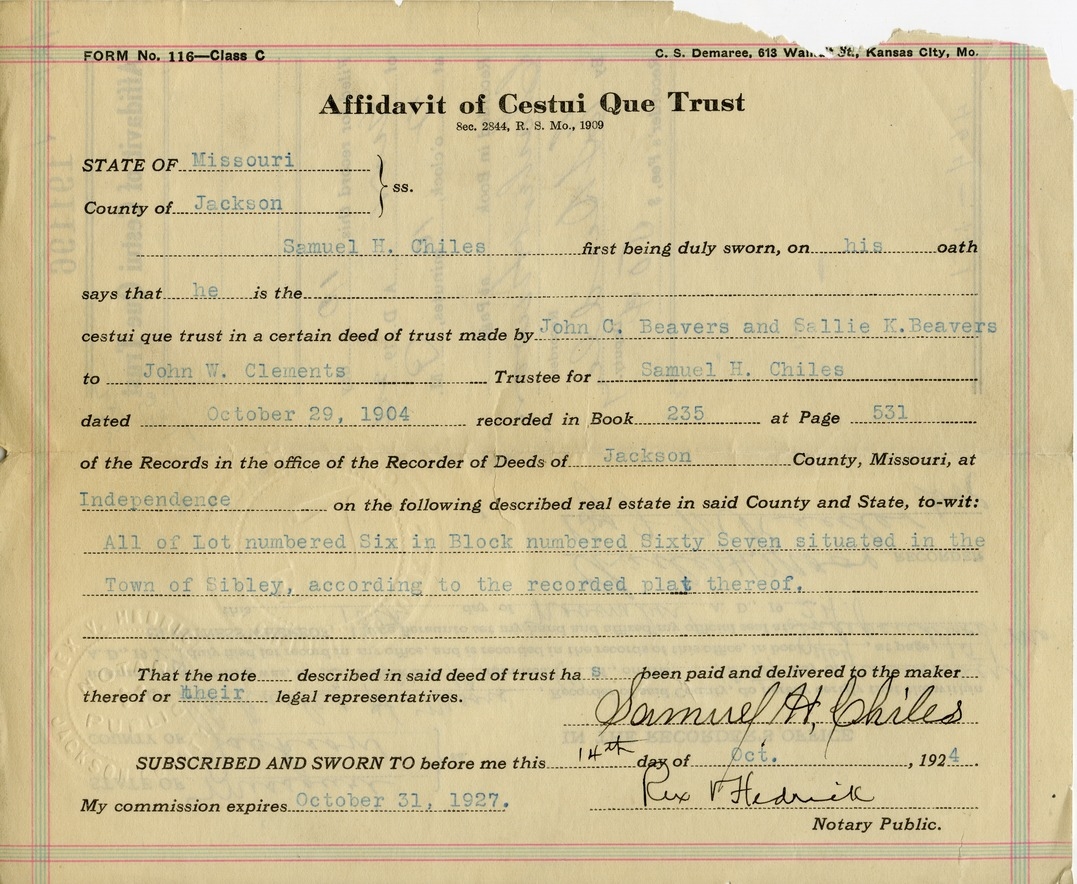 FORM No. 116—Class C
C. S. Demaree, 613 St., Kansas City, Mo.
Affidavit of Cestui Que Trust
Sec. 2844, R. S. Mo., 1909
STATE OF Missouri
ss.
County of Jackson
Samuel H. Chiles first being duly sworn, on his oath
says that he is the
cestui que trust in a certain deed of trust made by John C. Beavers and Sallie K.Beavers
to John W. Clements Trustee for Samuel H. Chiles
dated October 29, 1904 recorded in Book 235 at Page 531
of the Records in the office of the Recorder of Deeds of Jackson County, Missouri, at
Independence on the following described real estate in said County and State, to-wit:
All of Lot numbered Six in Block numbered Sixty Seven situated in the
Town of Sibley, according to the recorded plat thereof.
That the note described in said deed of trust ha s been paid and delivered to the maker
thereof or their legal representatives.
Samuel H. Chiles
SUBSCRIBED AND SWORN TO before me this 14th day of Oct. , 1924.
Rex V Hedrick
My commission expires October 31, 1927.
Notary Public.